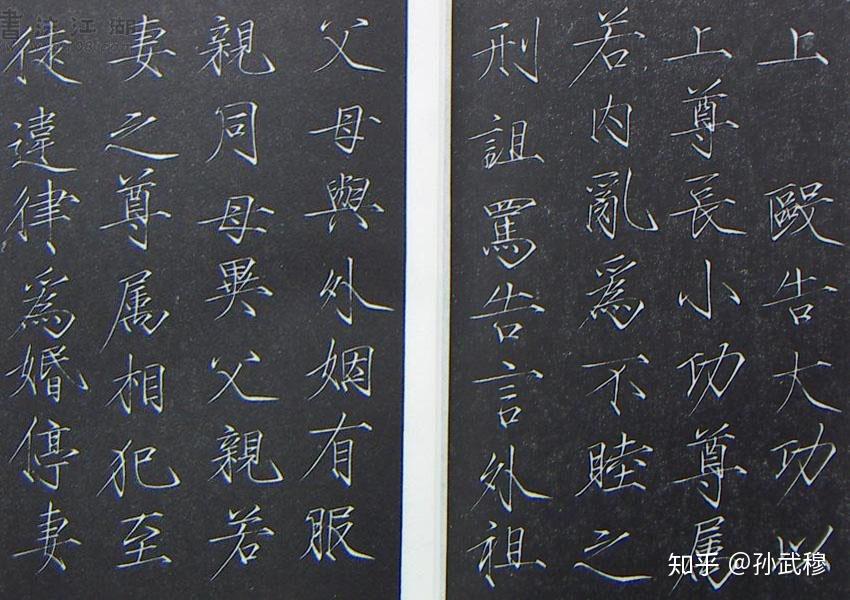 上 毆告大功以
上尊長小功尊属
若内亂爲不睦之
刑詛罵告言外祖
父母與外姻有服
親同母異父親若
妻之尊属相犯至
徒違律爲婚停妻
書法江湖
知乎 @孙武穆